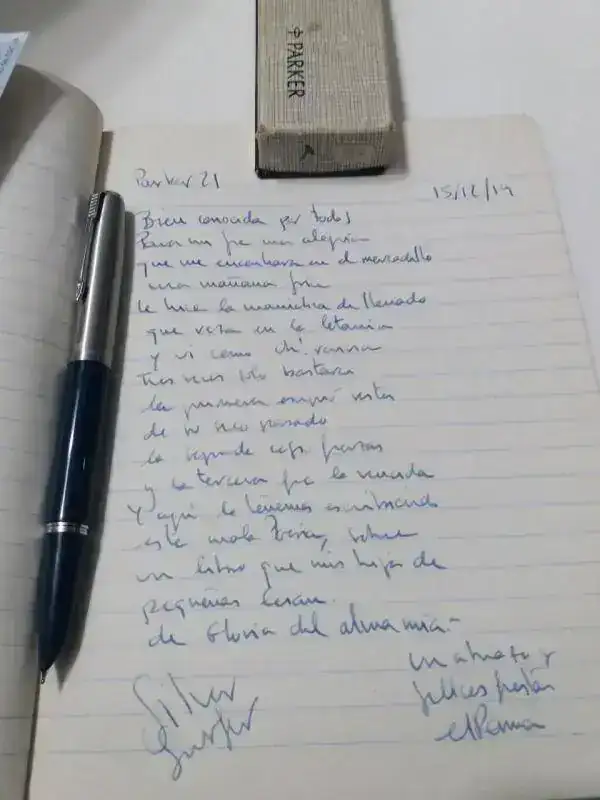 PARKER
Parker 21
15/12/19
Bien conocida por todos
Para mi fue una alegría
que me encontrara en el mercadillo
una mañana fria
le hice la maniobra de llenado
que reza en la letania
y vi como
Tres veces solo bastaria
la primera restos
de pasado
la segunda
y la tercera fue la vencida
Y aqui la tenemos escribiendo
esta mala sobre
un libro que mis hijas de
pequeñas leian.
de Gloria del alma mia.-
un abrazo y
felices fiestas
Silver
Surfer